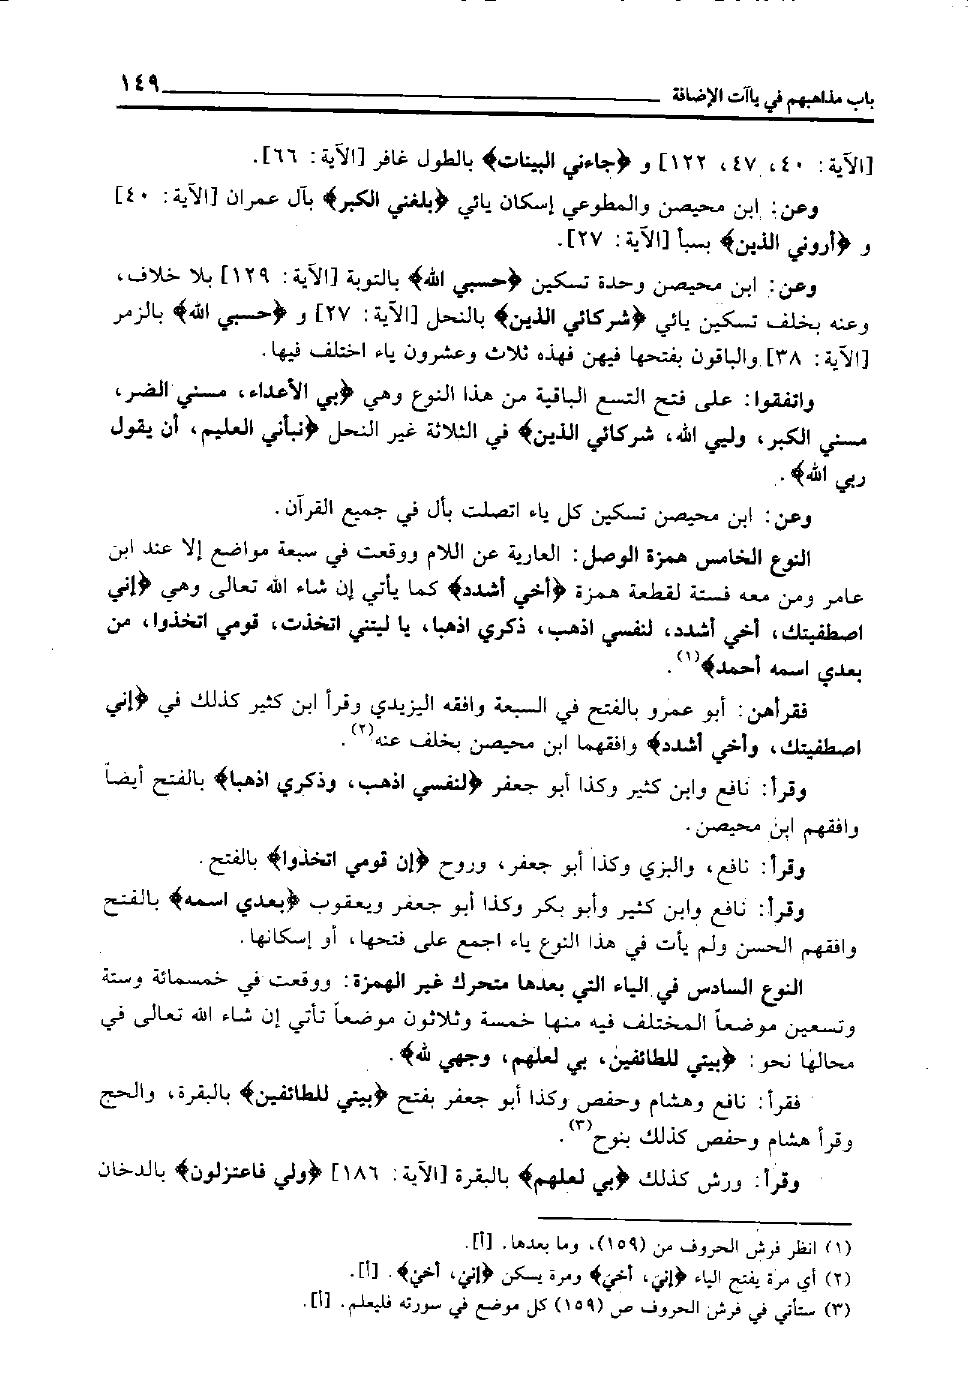 باب مذاهبهم في ياآت الإضافة ١٤٩
[الآية: ٤٠، ٤٧، ١٢٢] و ﴿جاءني البينات﴾ بالطول غافر [الآية: ٦٦].
وعن: ابن محيصن والمطوعي إسكان يائي ﴿بلغني الكبر﴾ بآل عمران [الآية: ٤٠]
و ﴿أروني الذين﴾ بسبأ [الآية: ٢٧].
وعن: ابن محيصن وحدة تسكين ﴿حسبي الله﴾ بالتوبة [الآية: ١٢٩] بلا خلاف،
وعنه بخلف تسكين يائي ﴿شركائي الذين﴾ بالنحل [الآية: ٢٧] و ﴿حسبي الله﴾ بالزمر
[الآية: ٣٨] والباقون بفتحها فيهن فهذه ثلاث وعشرون ياء اختلف فيها.
واتفقوا: على فتح التسع الباقية من هذا النوع وهي ﴿بي الأعداء، مسني الضر،
مسني الكبر، وليي الله، شركائي الذين﴾ في الثلاثة غير النحل ﴿نبأني العليم، أن يقول
ربي الله﴾.
وعن: ابن محيصن تسكين كل ياء اتصلت بأل في جميع القرآن.
النوع الخامس همزة الوصل: العارية عن اللام ووقعت في سبعة مواضع إلا عند ابن
عامر ومن معه فستة لقطعة همزة ﴿أخي أشدد﴾ كما يأتي إن شاء الله تعالى وهي ﴿إني
اصطفيتك، أخي أشدد، لنفسي اذهب، ذكري اذهبا، يا ليتني اتخذت، قومي اتخذوا، من
بعدي اسمه أحمد﴾(١).
فقرأهن: أبو عمرو بالفتح في السبعة وافقه اليزيدي وقرأ ابن كثير كذلك في ﴿إني
اصطفيتك، وأخي أشدد﴾ وافقهما ابن محيصن بخلف عنه(٢).
وقرأ: نافع وابن كثير وكذا أبو جعفر ﴿لنفسي اذهب، وذكري اذهبا﴾ بالفتح أيضاً
وافقهم ابن محيصن.
وقرأ: نافع، والبزي وكذا أبو جعفر، وروح ﴿إن قومي اتخذوا﴾ بالفتح.
وقرأ: نافع وابن كثير وأبو بكر وكذا أبو جعفر ويعقوب ﴿بعدي اسمه﴾ بالفتح
وافقهم الحسن ولم يأت في هذا النوع ياء اجمع على فتحها، أو إسكانها.
النوع السادس في الياء التي بعدها متحرك غير الهمزة: ووقعت في خمسمائة وستة
وتسعين موضعاً المختلف فيه منها خمسة وثلاثون موضعاً تأتي إن شاء الله تعالى في
محالها نحو: ﴿بيتي للطائفين، بي لعلهم، وجهي لله﴾.
فقرأ: نافع وهشام وحفص وكذا أبو جعفر بفتح ﴿بيتي للطائفين﴾ بالبقرة، والحج
وقرأ هشام وحفص كذلك بنوح(٣).
وقرأ: ورش كذلك ﴿بي لعلهم﴾ بالبقرة [الآية: ١٨٦] ﴿ولي فاعتزلون﴾ بالدخان
(١) انظر فرش الحروف من (١٥٩)، وما بعدها. [أ].
(٢) أي مرة يفتح الياء ﴿إنيَ، أخيَ﴾ ومرة يسكن ﴿إنيْ، أخيْ﴾. [أ].
(٣) ستأني في فرش الحروف ص (١٥٩) كل موضع في سورته فليعلم. [أ].